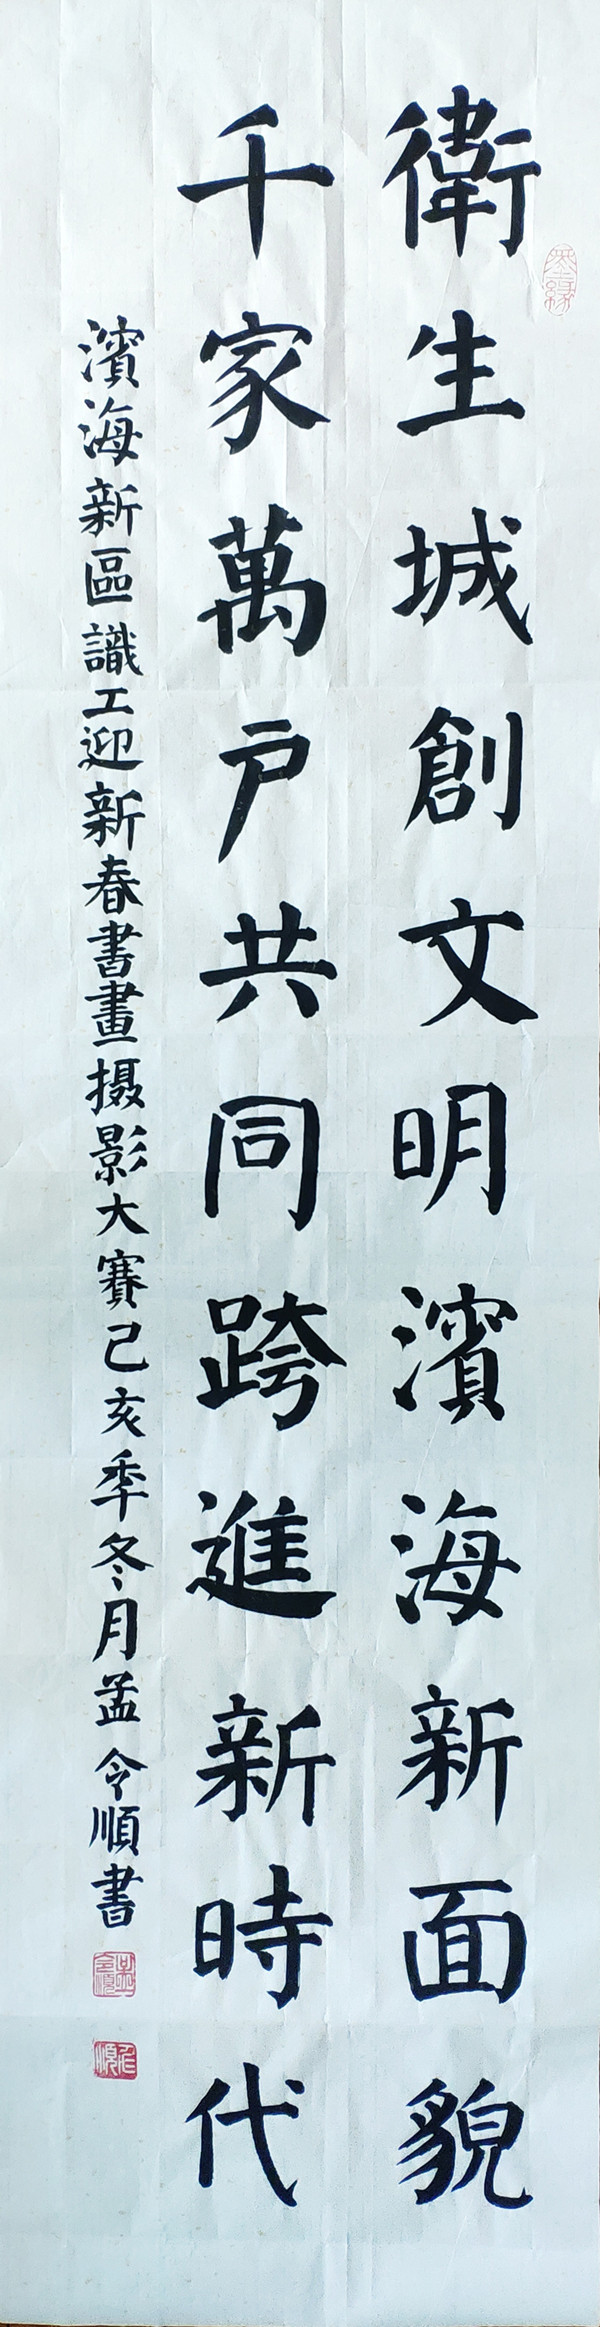 衛生城創文明濱海新面貌
千家萬户共同跨進新時代
濱海新區識工迎新春書畫摄影大賽己亥季冬月孟令順書
墨緣